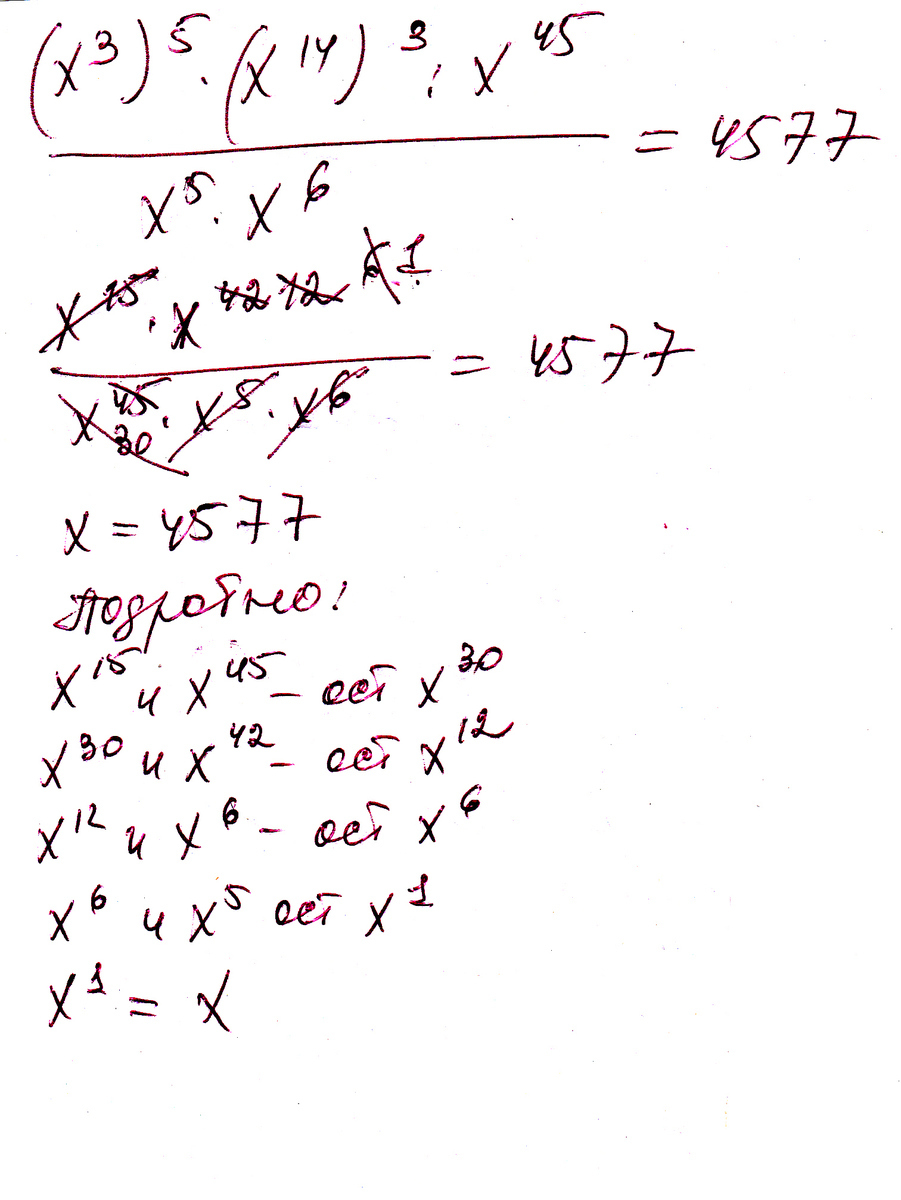 (x³)⁵ · (x¹⁴)³ : x⁴⁵
= 4577
x⁵ · x⁶
x¹⁵ · x⁴² ¹² ⁶ ¹
= 4577
x⁴⁵ ³⁰ · x⁵ · x⁶
x = 4577
Подробно:
x¹⁵ и x⁴⁵ – ост x³⁰
x³⁰ и x⁴² – ост x¹²
x¹² и x⁶ – ост x⁶
x⁶ и x⁵ ост x¹
x¹ = x